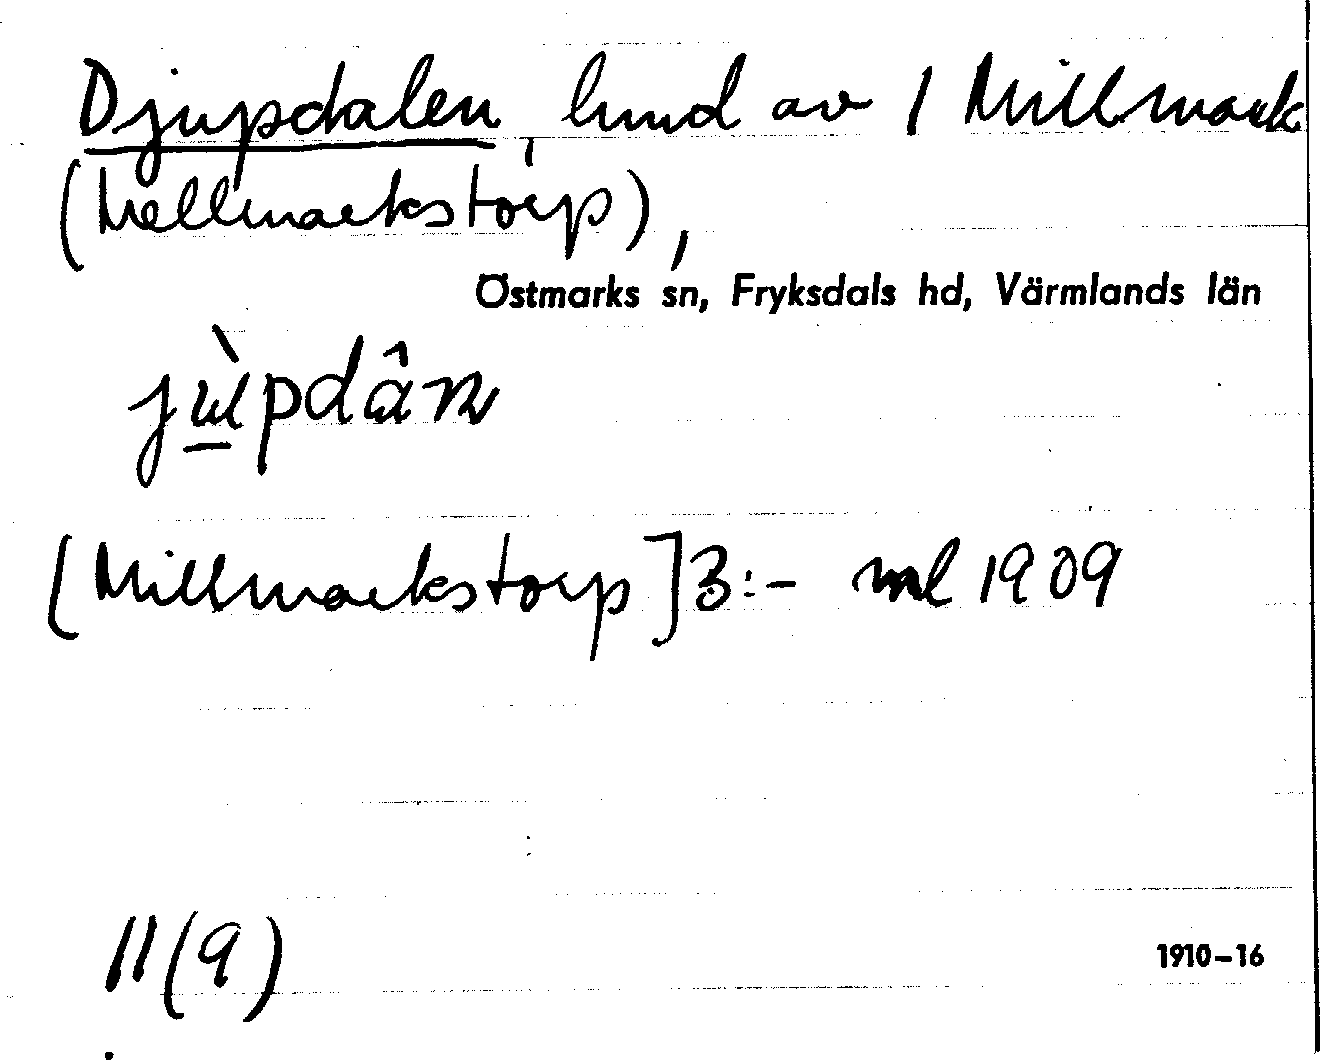 Djupdalen, lund av 1 Millmark
(Mellmarkstorp),
Östmarks sn, Fryksdals hd, Värmlands län
jùpdân
[Millmarkstorp] 3:- ml 1909
11(9)
1910–16